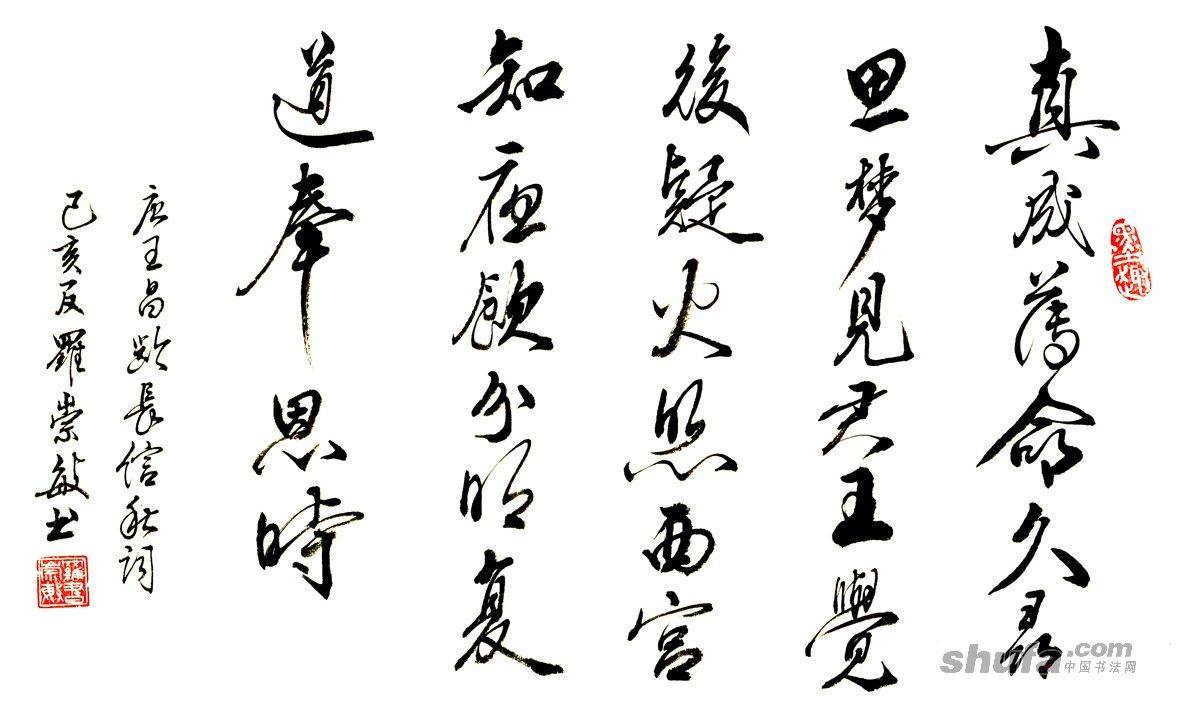 真成薄命久尋
思梦見君王覺
後疑火照西宫
知夜飲分明复
道奉恩時
唐王昌齡長信秋詞
己亥夏羅崇敏书
shufa.com
中国书法网